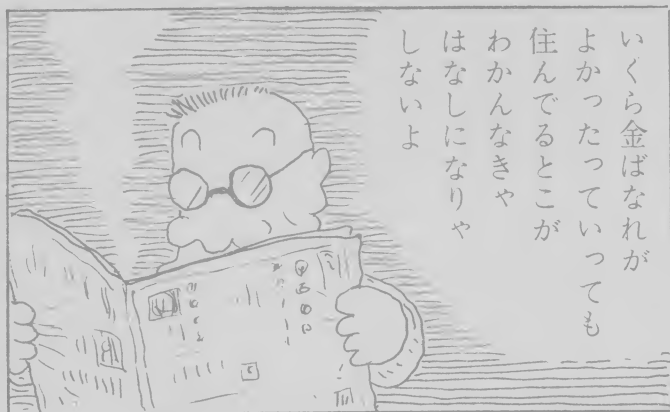 いくら金ばなれが
よかったっていっても
住んでるとこが
わかんなきゃ
はなしになりゃ
しないよ